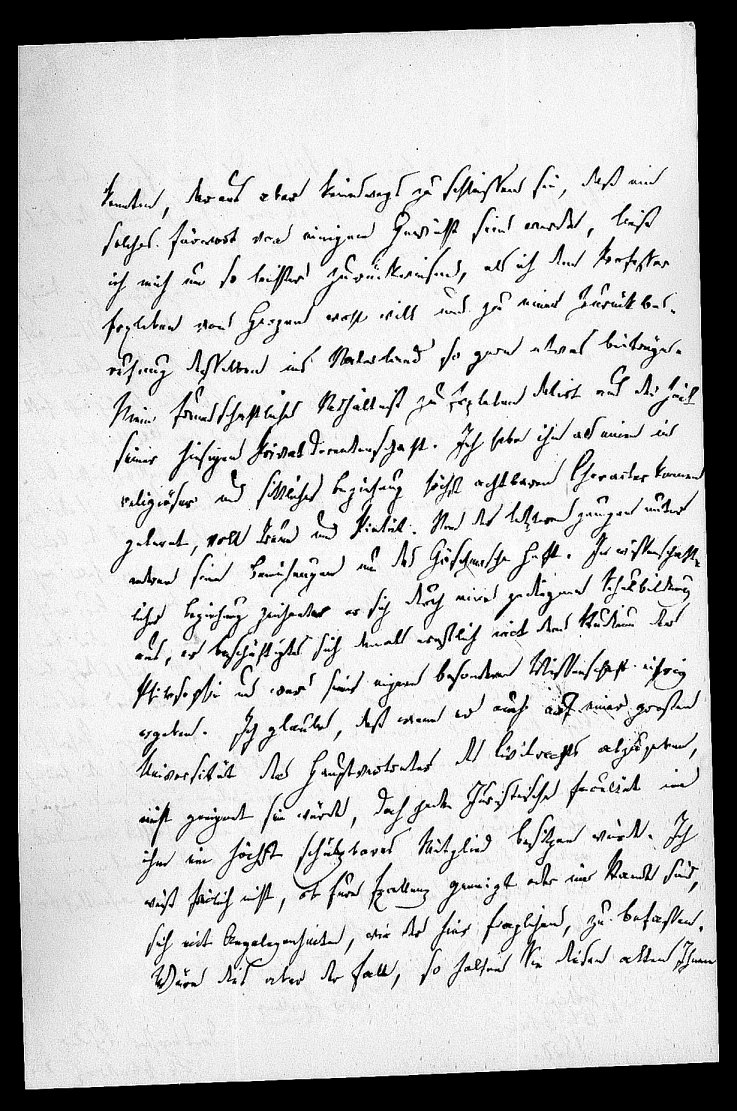 könnten, daraus aber keineswegs zu schließen sei, daß ein
solches Fürwort von einigem Gewicht sein werde, ließ
ich mich um so leichter zurückweisen, als ich dem Professor
von Herzen wohl will und zu einer Zurückbe-
rufung desselben ins Vaterland so gern etwas beitrüge.
Mein freundschaftliches Verhältniß zu datirt aus der Zeit
seiner hiesigen Privatdocentenschaft. Ich habe ihn als einen in
religiöser und sittlicher Beziehung höchst achtbaren Character kennen
gelernt, voll Treue und Pietät. Von der letzteren zeugen unter
andern seine Bemühungen um das Göschensche Heft. In wissenschaft-
licher Beziehung zeichnete er sich durch eine gediegene Schulbildung
aus, er beschäftigte sich damals ernstlich mit dem Studium der
Philosophie und war seiner eigenen besonderen Wissenschaft eifrig
ergeben. Ich glaube, daß wenn er auch auf einer großen
Universität den Hauptvertreter des Civilrechts abzugeben,
nicht geeignet sein würde, doch jede Juristische Facultät in
ihm ein höchst schätzbares Mitglied besitzen würde. Ich
weiß freilich nicht, ob Eure Excellenz geneigt oder im Stande sind,
sich mit Angelegenheiten, wie der hier fraglichen, zu befassen.
Wäre dies aber der Fall, so halten Sie diesen alten, Ihnen